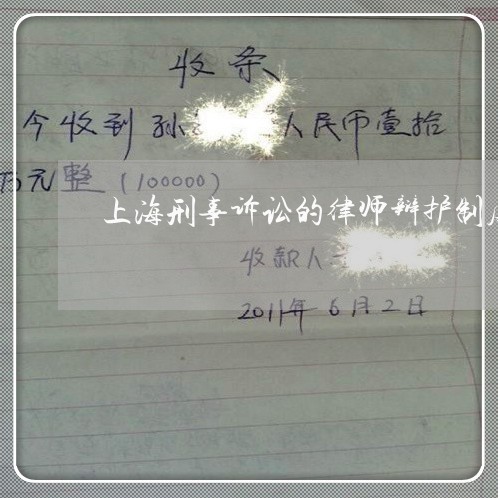 收条
今收到孙 人民币壹拾
万元整(100000)
上海刑事诉讼的律师辩护制
收款人
2011年6月2日